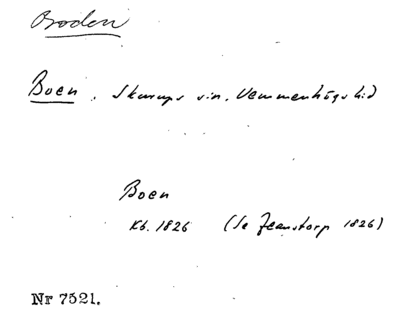 Boden
Boen. Skurups sn. Vemmenhögs hd
Boen
Kb. 1826 (Se Jeanstorp 1826)
Nr 7521.